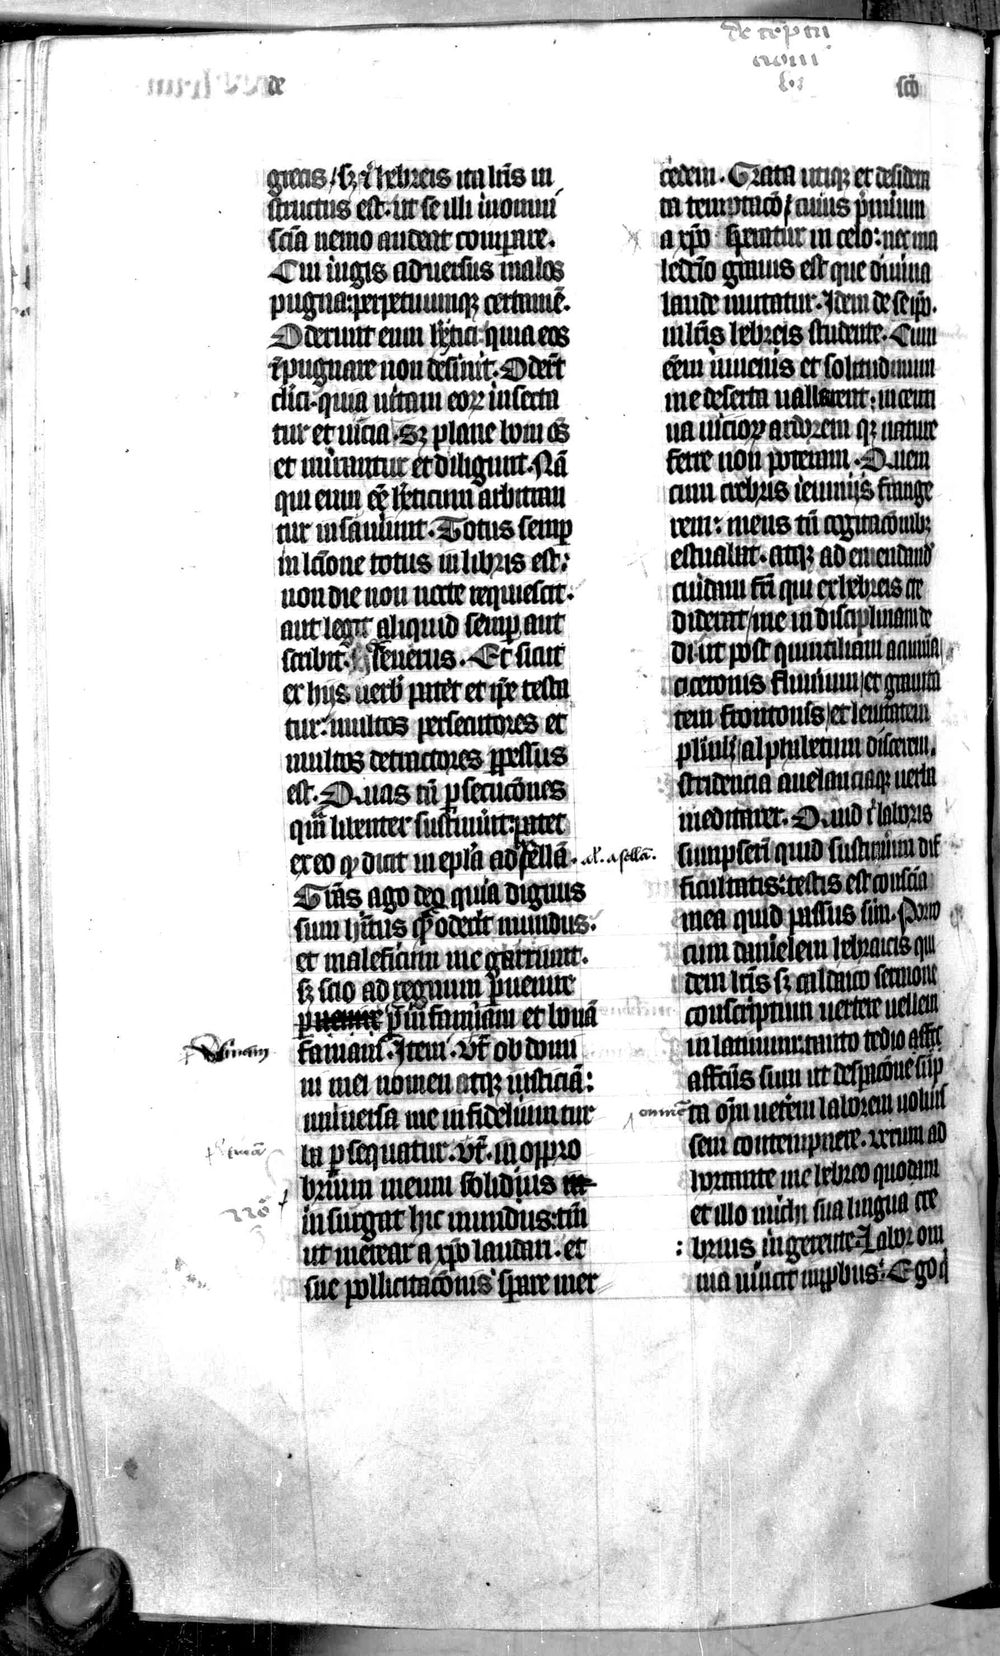 de
scd
grecis / sȝ ⁊ hebreis ita lr̄is in
structus est. ut se illi in omni
scīa nemo audeat comparare.
Cui iugis aduersus malos
pugna: perpetuumqȝ certamē.
Oderunt eum hēt̄ici quia eos
īpugnare non desinit. Oder̄t
clīci. quia uitam eoꝝ insecta
tur et uicia. Sȝ plane boni ōs
et mirantur et diligunt. Nā
qui eum eē hēt̄icum arbitran
tur insaniunt. Totus semp
in lc̄ione totus in libris est:
non die non nocte requiescit.
aut legit aliquid semp aut
scribit. Seuerus. Et sicut
ex hijs uerb̄ patet et ip̄e testa
tur: multos persecutores et
multos detractores ꝑpessus
est. Quas tn̄ ꝑsecuc̄ones
qm̄ libenter sustinuit: patet
ex eo qđ dicit in epl̄a ad asellā. al'. asellā.
Gr̄as ago deo quia dignus
sum hītus quē oderit mundus.
et maleficum me garriunt.
sȝ scio ad regnum ꝑuenire
ꝑuenire ꝑ in famiam et bonā
famam. Item. Vt̄ ob domi
ni mei nomen atqȝ iusticiā:
uniuersa me infidelium tur
ba ꝑsequatur. Vt̄. in oppro
brium meum solidius in
insurgat hic mundus: tm̄
ut merear a xp̄o laudari. et
sue pollicitac̄onis sperare mer
cedem. Grata utiqȝ et desidera
ta temptac̄o / cuius p̄mium
a xp̄o speratur in celo: nec ma
ledc̄io grauis est que diuina
laude mutatur. Idem de se ip̄o.
in lr̄is hebreis studente. Cum
eēm iuuenis et solitudinum
me deserta uallarent: incenti
ua uicioꝝ ardorem qȝ nature
ferre non poteram. Quem
cum crebris ieiunijs frange
rem: mens tn̄ cogitac̄onibȝ
estuabat. atqȝ ad emendand
cuidam frī qui ex hebreis cre
diderat / me in disciplinam de
di. ut post quintiliani acumīa /
ciceronis fluuium / et grauita
tem frontonis / et lenitatem
plinij / alphabetum discerem.
stridencia anelanciaqȝ uerba
meditarer. Quid ī laboris
sumpserī quid sustinuim dif
ficultatis: testis est conscīa
mea quid passus sim. Porro
cum danielem hebraicis qui
dem lr̄is sȝ caldaico sermone
conscriptum uertere uellem
in latinum: tanto tedio affec
affectus sum ut despac̄one sūp
ta oīm ueterem laborem uoluis
sem contempnere. uerum ad
hortante me hebreo quodam
et illo michi sua lingua cre
brius ingerente. Labor om
nia uincit inprobus. Ego q̄